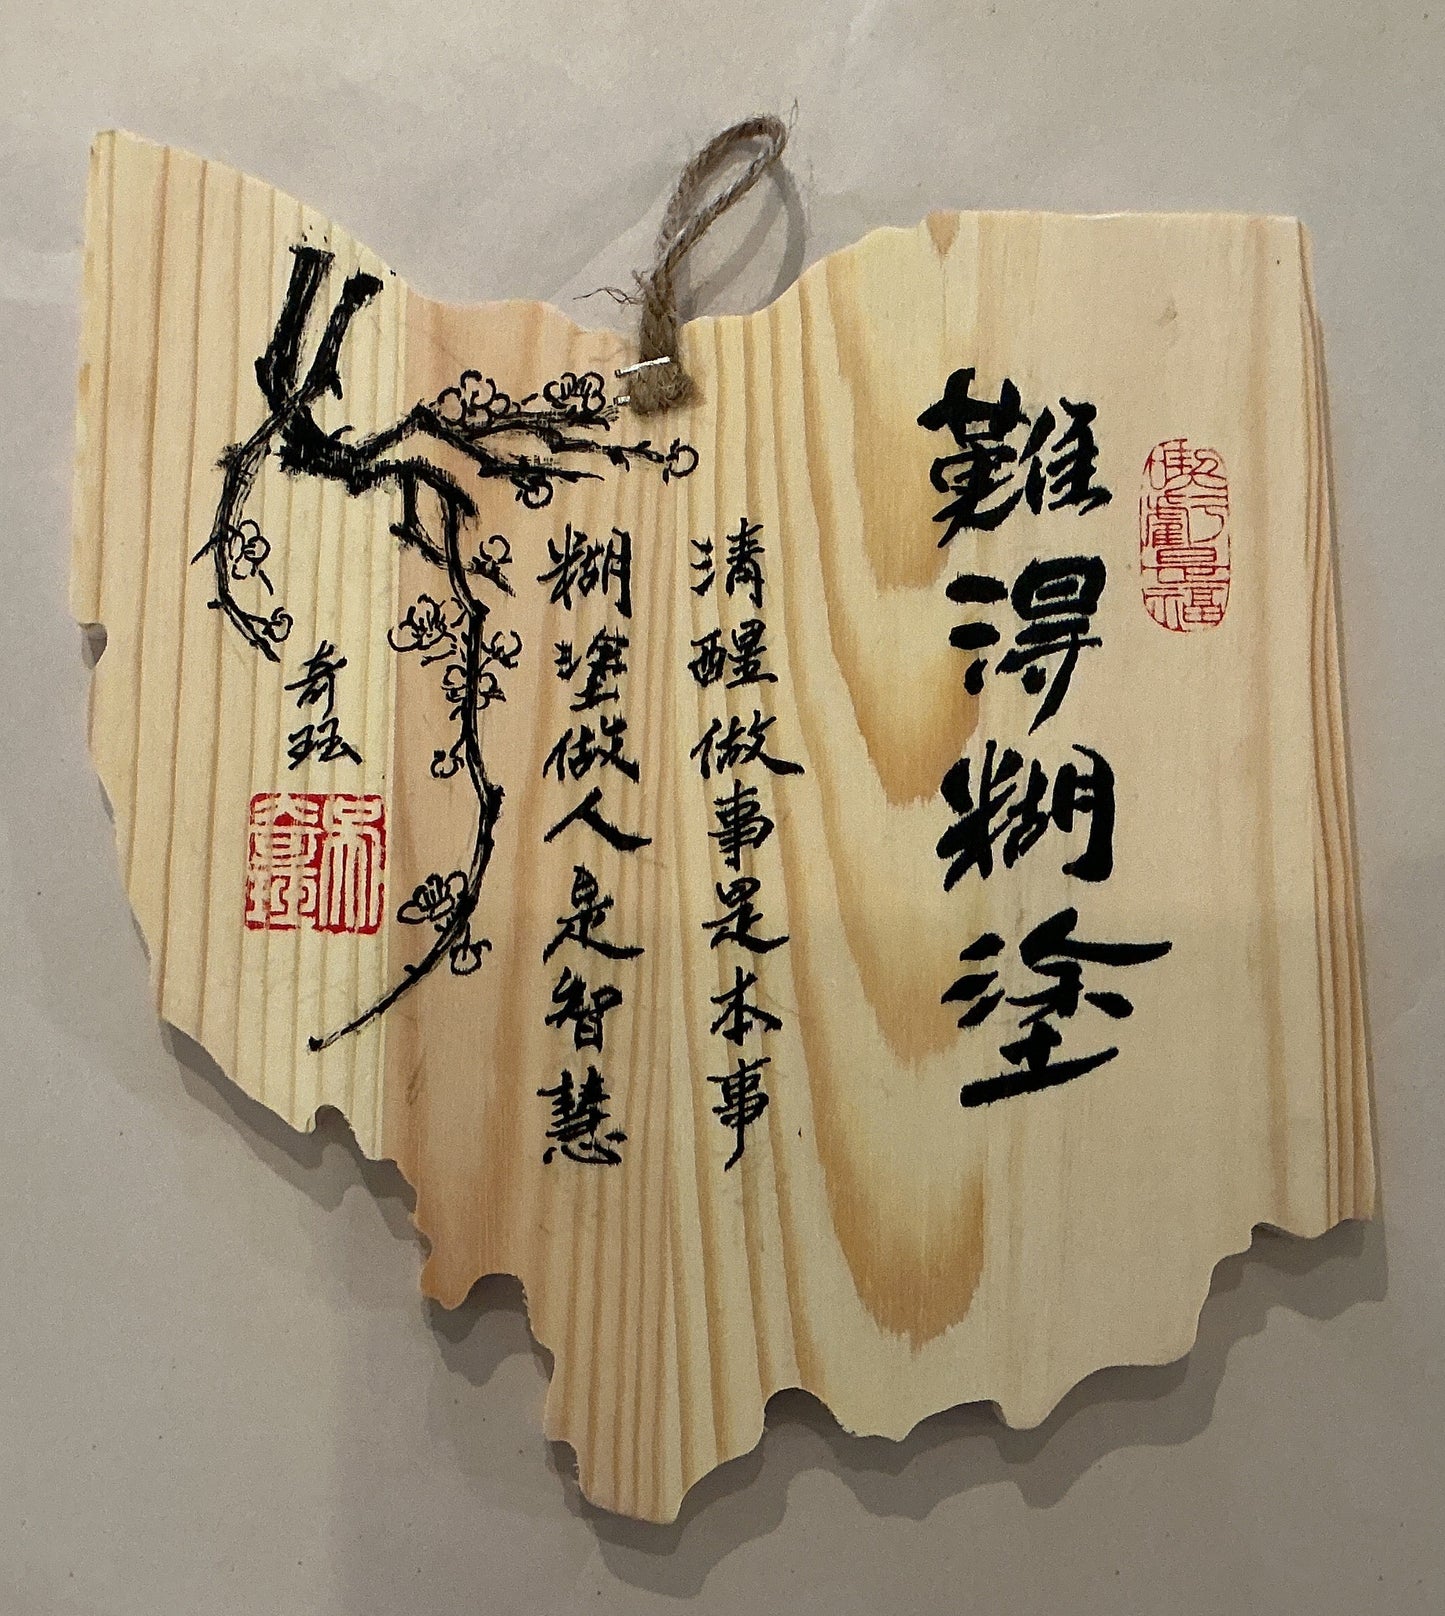 難得糊塗
清醒做事是本事
糊塗做人是智慧
奇珏